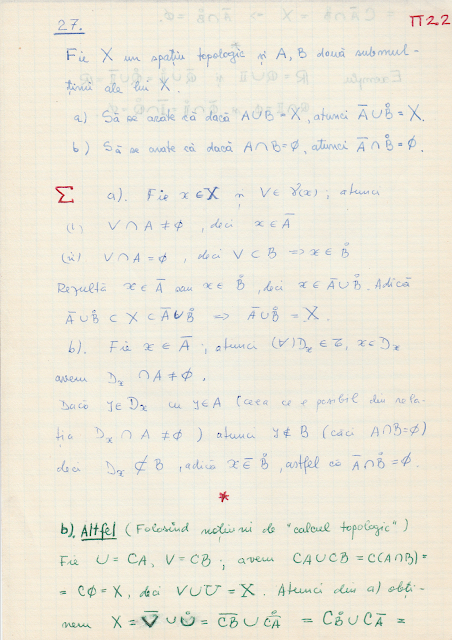 27.
Π22
Fie X un spațiu topologic și A, B două submul-
țimi ale lui X.
a) Să se arate că dacă A∪B = X, atunci A̅∪B̊ = X.
b) Să se arate că dacă A∩B = ∅, atunci A̅∩B̊ = ∅.
Σ a). Fie x∈X și V∈𝒱(x); atunci
(i) V∩A ≠ ∅, deci x∈A̅
(ii) V∩A = ∅, deci V⊂B ⟹ x∈B̊
Rezultă x∈A̅ sau x∈B̊, deci x∈A̅∪B̊. Adică
A̅∪B̊ ⊂ X ⊂ A̅∪B̊ ⟹ A̅∪B̊ = X.
b). Fie x∈A̅; atunci (∀)Dₓ∈τ, x∈Dₓ
avem Dₓ∩A ≠ ∅.
Dacă y∈Dₓ cu y∈A (ceea ce e posibil din rela-
ția Dₓ∩A ≠ ∅) atunci y∉B (căci A∩B=∅)
deci Dₓ⊄B, adică x∉B̊, astfel că A̅∩B̊ = ∅.
*
b). Altfel (Folosind noțiuni de "calcul topologic")
Fie U = CA, V = CB; avem CA∪CB = C(A∩B) =
= C∅ = X, deci V∪U = X. Atunci din a) obți-
nem X = V̅∪Ů = C̅B̅∪CÅ = CB̊∪CA̅ =